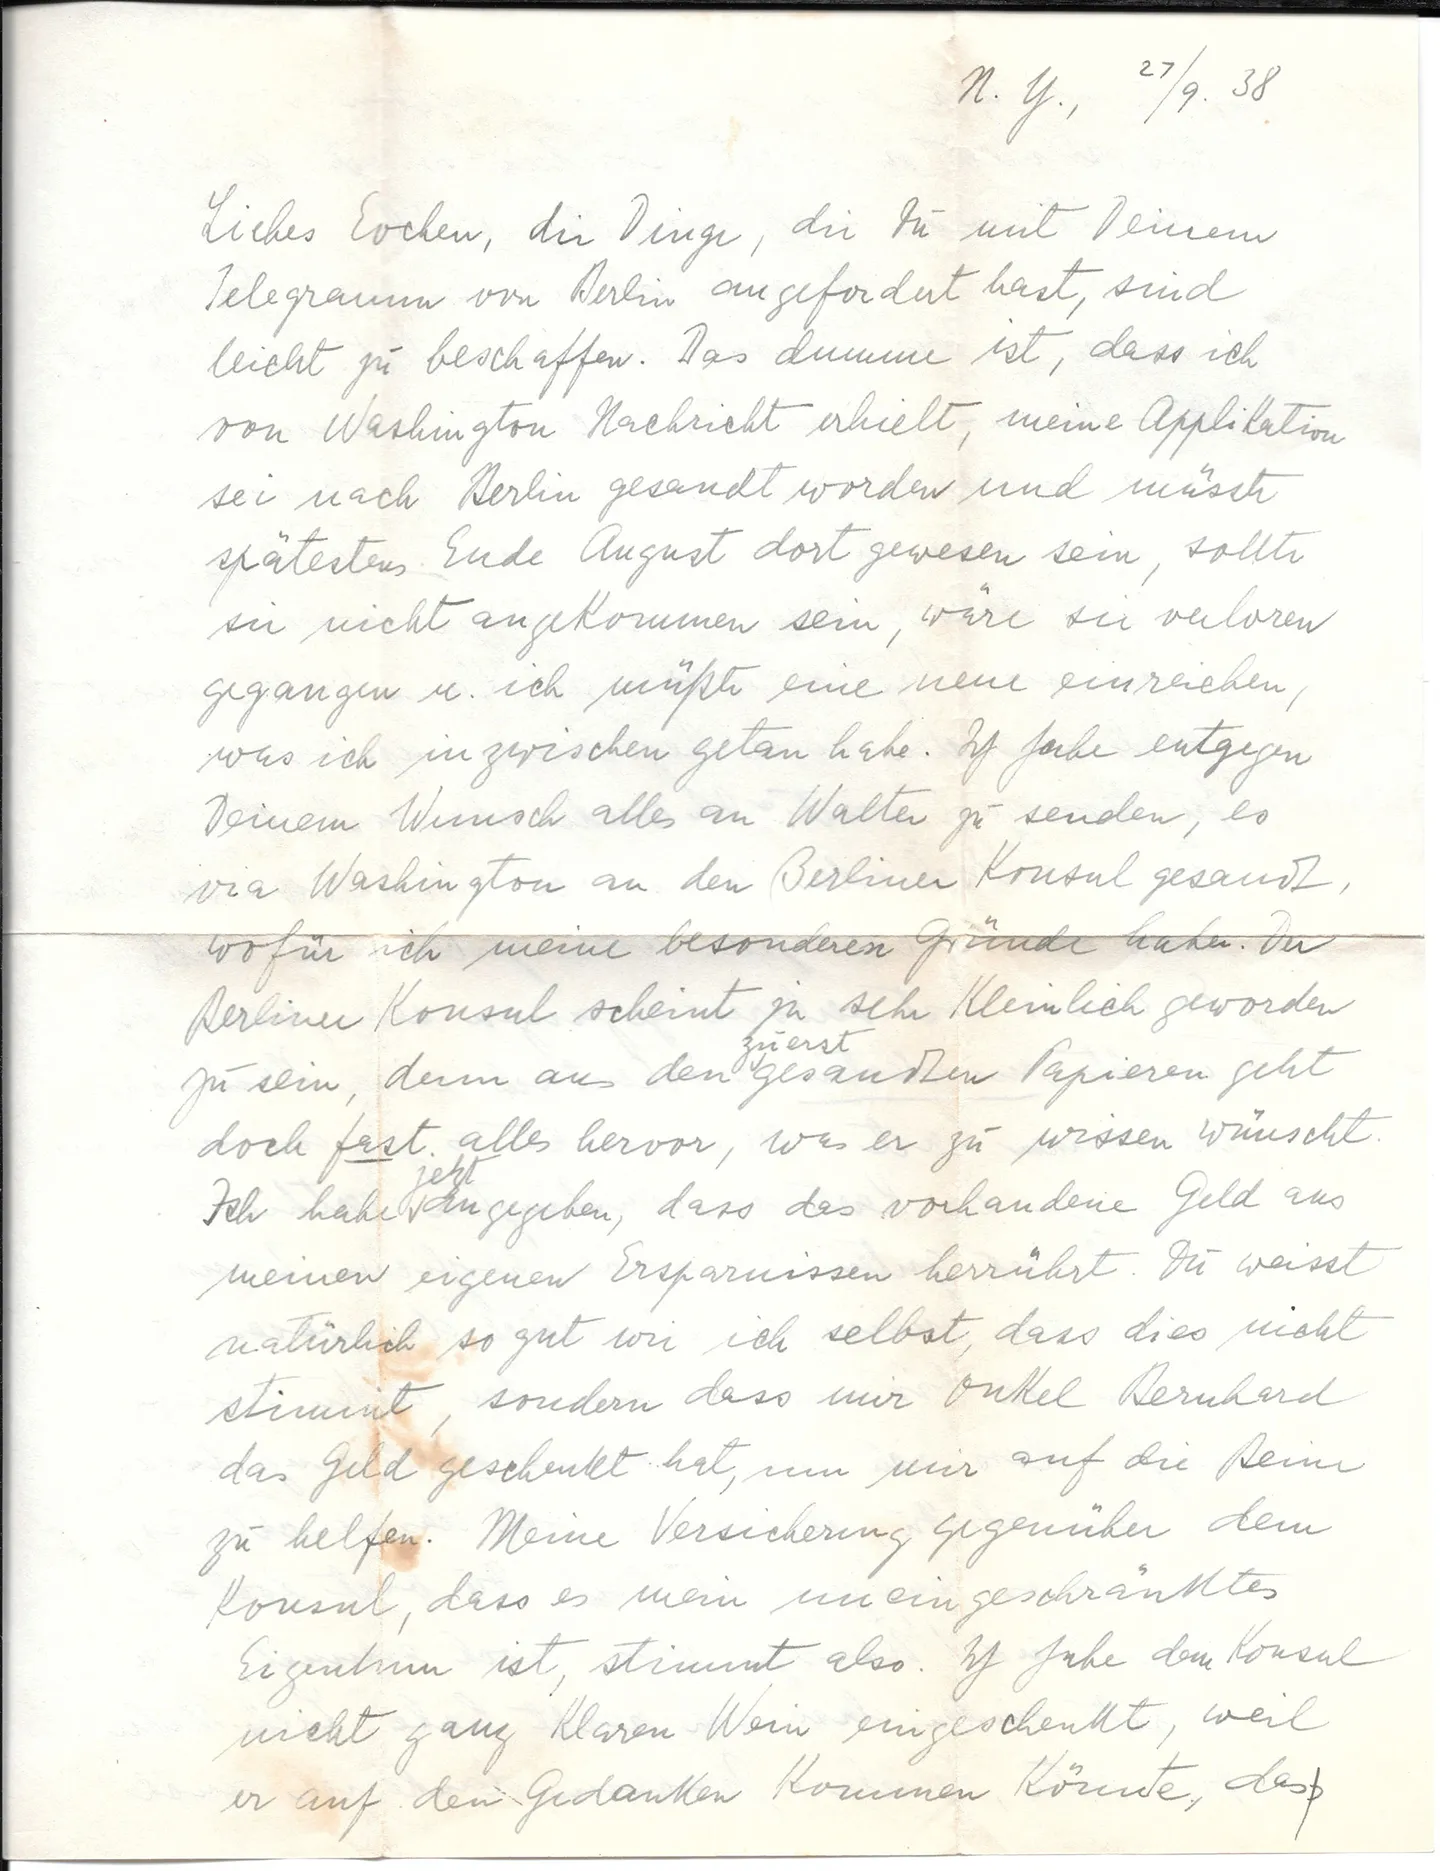 N. Y., 27/9. 38
Liebes Evchen, die Dinge, die Du mit Deinem
Telegramm von Berlin angefordert hast, sind
leicht zu beschaffen. Das dumme ist, dass ich
von Washington Nachricht erhielt, meine Applikation
sei nach Berlin gesandt worden und müsste
spätestens Ende August dort gewesen sein, sollte
sie nicht angekommen sein, wäre sie verloren
gegangen u. ich müßte eine neue einreichen,
was ich inzwischen getan habe. Ich habe entgegen
Deinem Wunsch alles an Walter zu senden, es
via Washington an den Berliner Konsul gesandt,
wofür ich meine besonderen Gründe habe. Der
Berliner Konsul scheint ja sehr kleinlich geworden
zu sein, denn aus den zuerst gesandten Papieren geht
doch fast alles hervor, was er zu wissen wünscht.
Ich habe jetzt angegeben, dass das vorhandene Geld aus
meinen eigenen Ersparnissen herrührt. Du weisst
natürlich so gut wie ich selbst, dass dies nicht
stimmt, sondern dass mir Onkel Bernhard
das Geld geschenkt hat, um mir auf die Beine
zu helfen. Meine Versicherung gegenüber dem
Konsul, dass es mein uneingeschränktes
Eigentum ist, stimmt also. Ich habe dem Konsul
nicht ganz klaren Wein eingeschenkt, weil
er auf den Gedanken kommen könnte, dass